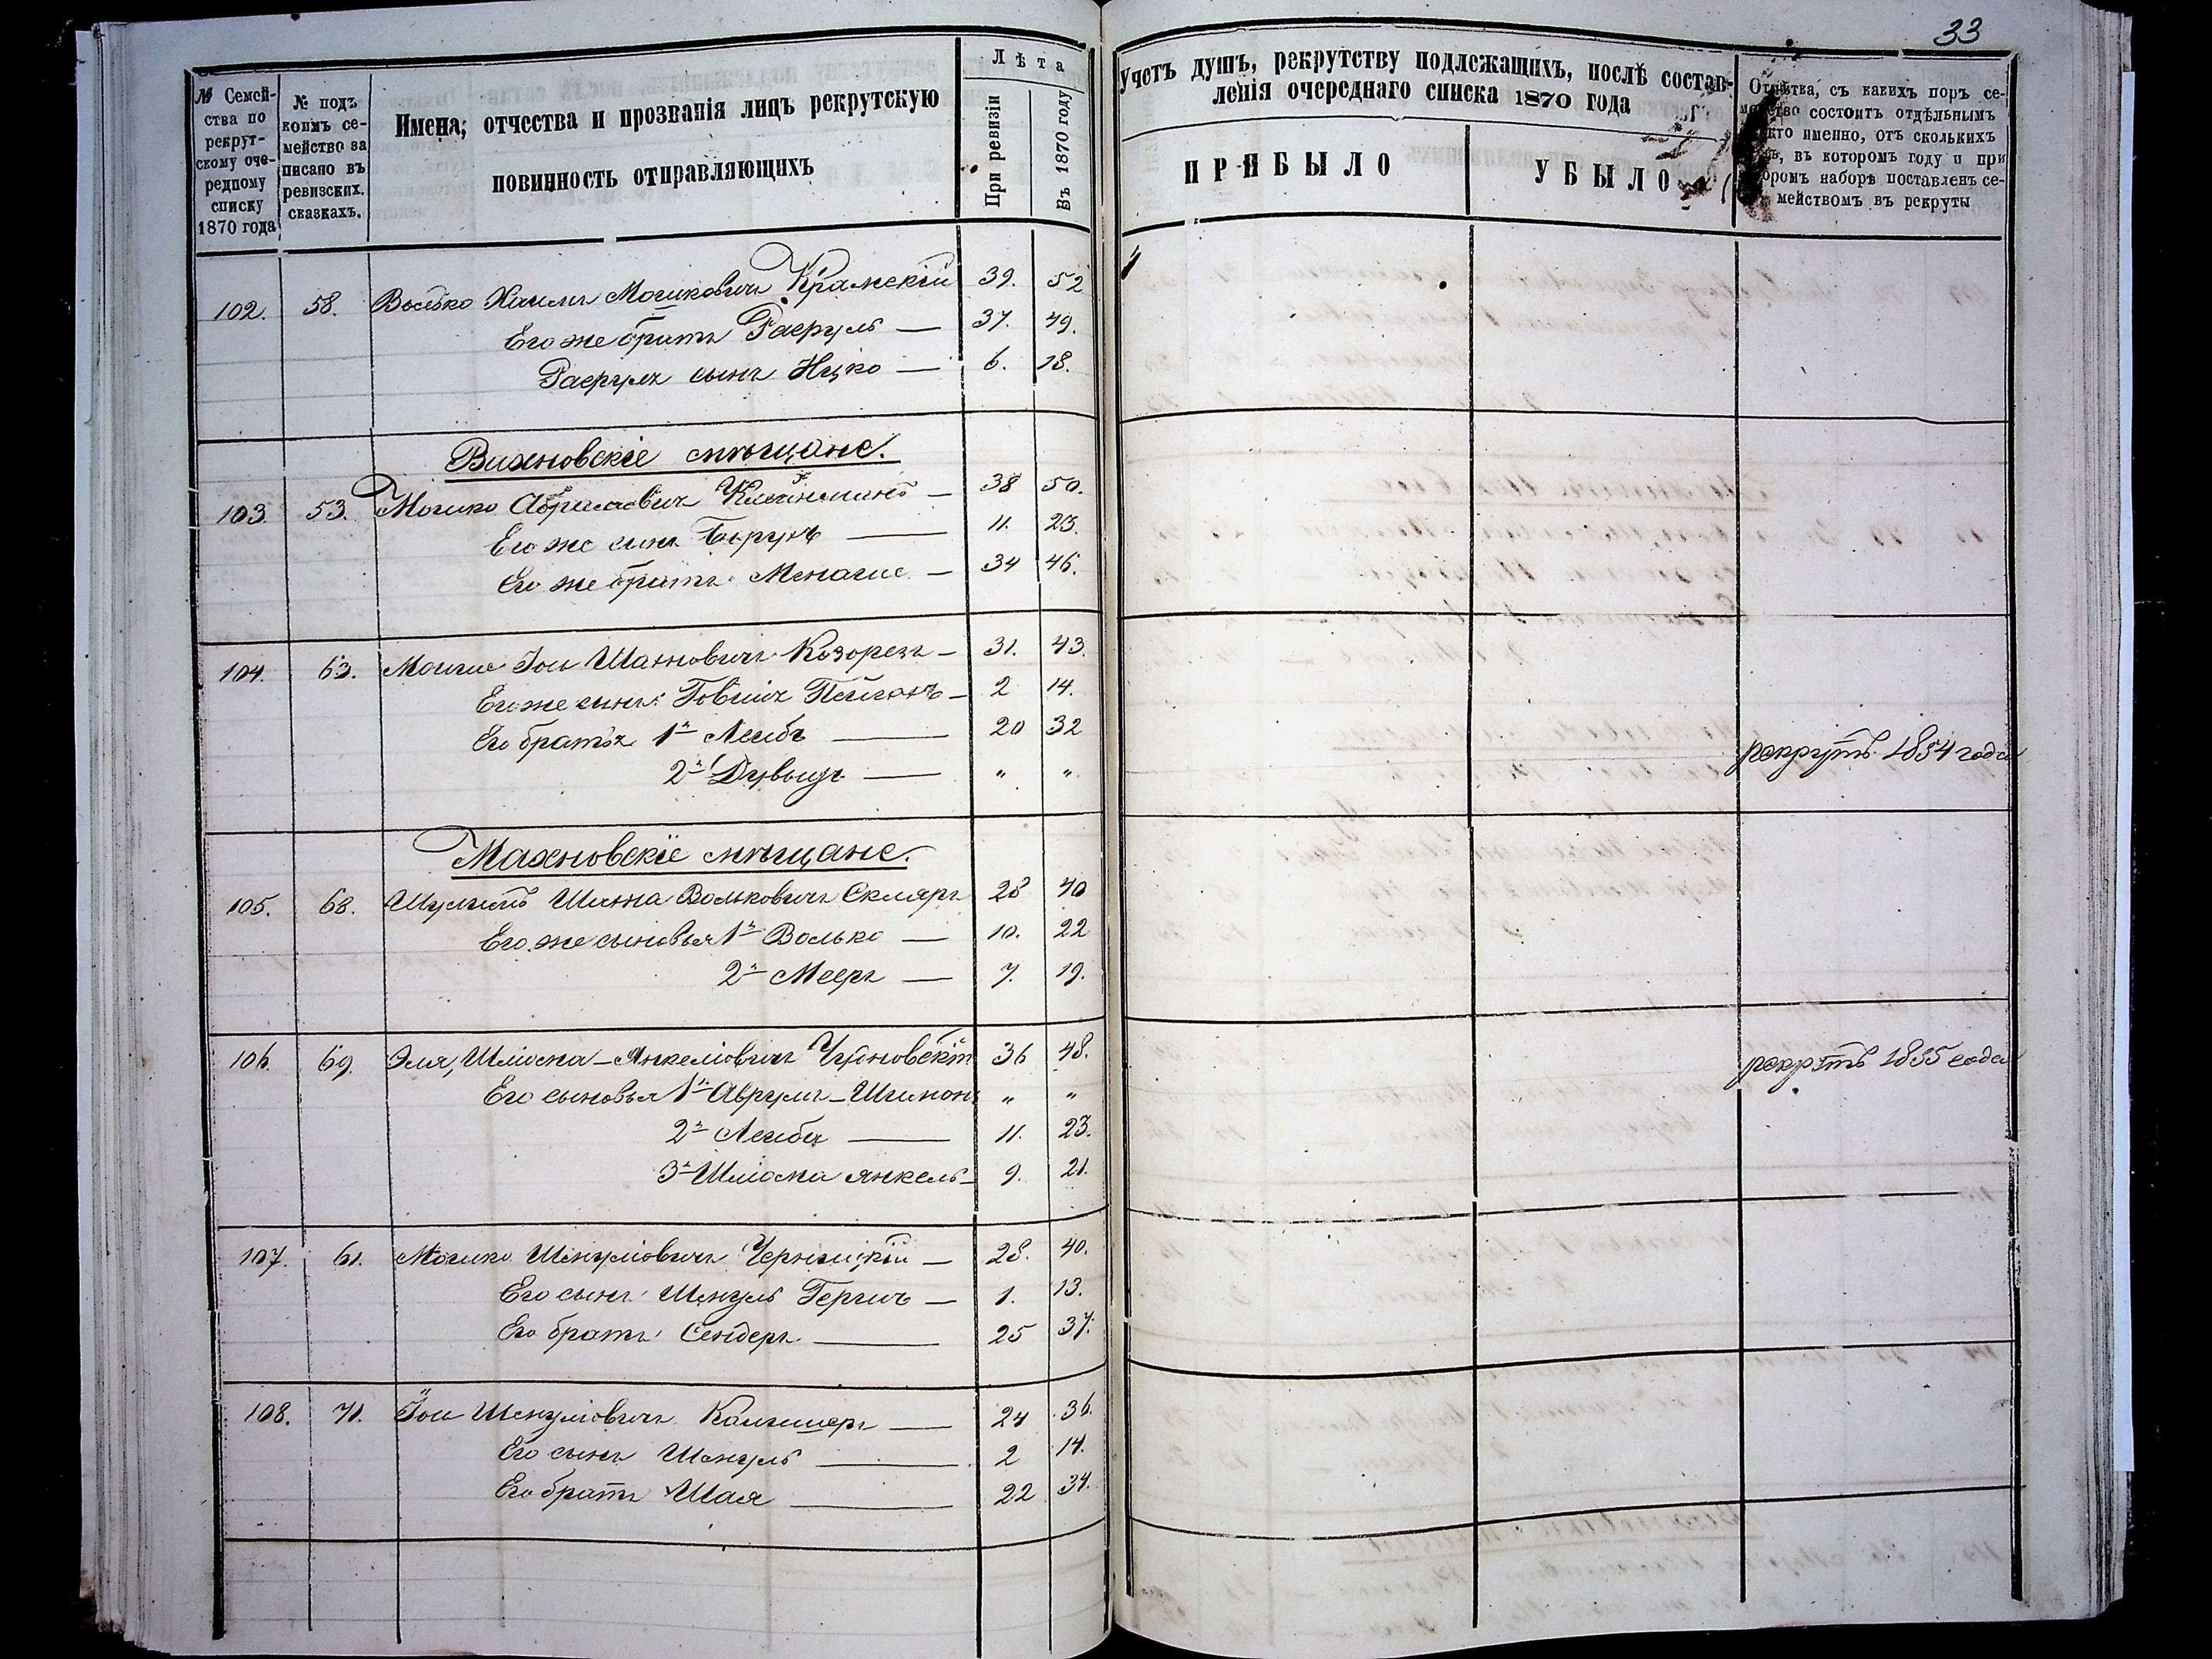 33
№ Семей-
ства по
рекрут-
скому оче-
редному
списку
1870 года
№ подъ
коимъ се-
мейство за
писано въ
ревизских.
сказкахъ.
Имена, отчества и прозванія лицъ рекрутскую
повинность отправляющихъ
Лѣта
При ревизіи
Въ 1870 году
Учетъ душъ, рекрутству подлежащихъ, послѣ состав-
ленія очереднаго списка 1870 года
ПРИБЫЛО
УБЫЛО
Отмѣтка, съ какихъ поръ се-
мейство состоитъ отдѣльнымъ
кто именно, отъ сколькихъ
въ котором году и при
наборѣ поставленъ се-
мействомъ въ рекруты
102. 58. Волько Хаимъ Мошковичъ Крамскій 39. 52
Его же братъ Расруль — 37. 49.
Расруля сынъ Ицко — 6. 18.
Вихновскіе мѣщане.
103. 53. Мошко Абрамовичъ Клейнманъ — 38 50.
Его же сынъ Борухъ — 11. 23.
Его же братъ Менаше — 34 46.
104. 63. Мошко Іось Шахновичъ Козорезъ — 31. 43.
Его же сынъ Говшія — 2 14.
Его братья 1й Лейбъ — 20 32
2й Дувыдъ — " " рекрутъ 1854 года
Махновскіе мѣщане.
105. 68. Шулимъ Шахна Вольковичъ Скляръ 28 40
Его же сыновья 1й Волько — 10. 22
2й Мееръ — 7. 19.
106. 69. Эля, Шліома-Янкеліовичъ Чудновскій 36 48. рекрутъ 1855 года
Его сыновья 1й Аврумъ-Шимонъ " "
2й Лейба — 11. 23.
3й Шліома Янкель — 9. 21.
107. 61. Мошко Шмуліовичъ Черницкій — 28. 40.
Его сынъ Шмуль Гершъ — 1. 13.
Его братъ Сендеръ — 25 37.
108. 71. Іось Шмуліовичъ — 24 36.
Его сынъ Шмуль — 2 14.
Его братъ Шая — 22 34.